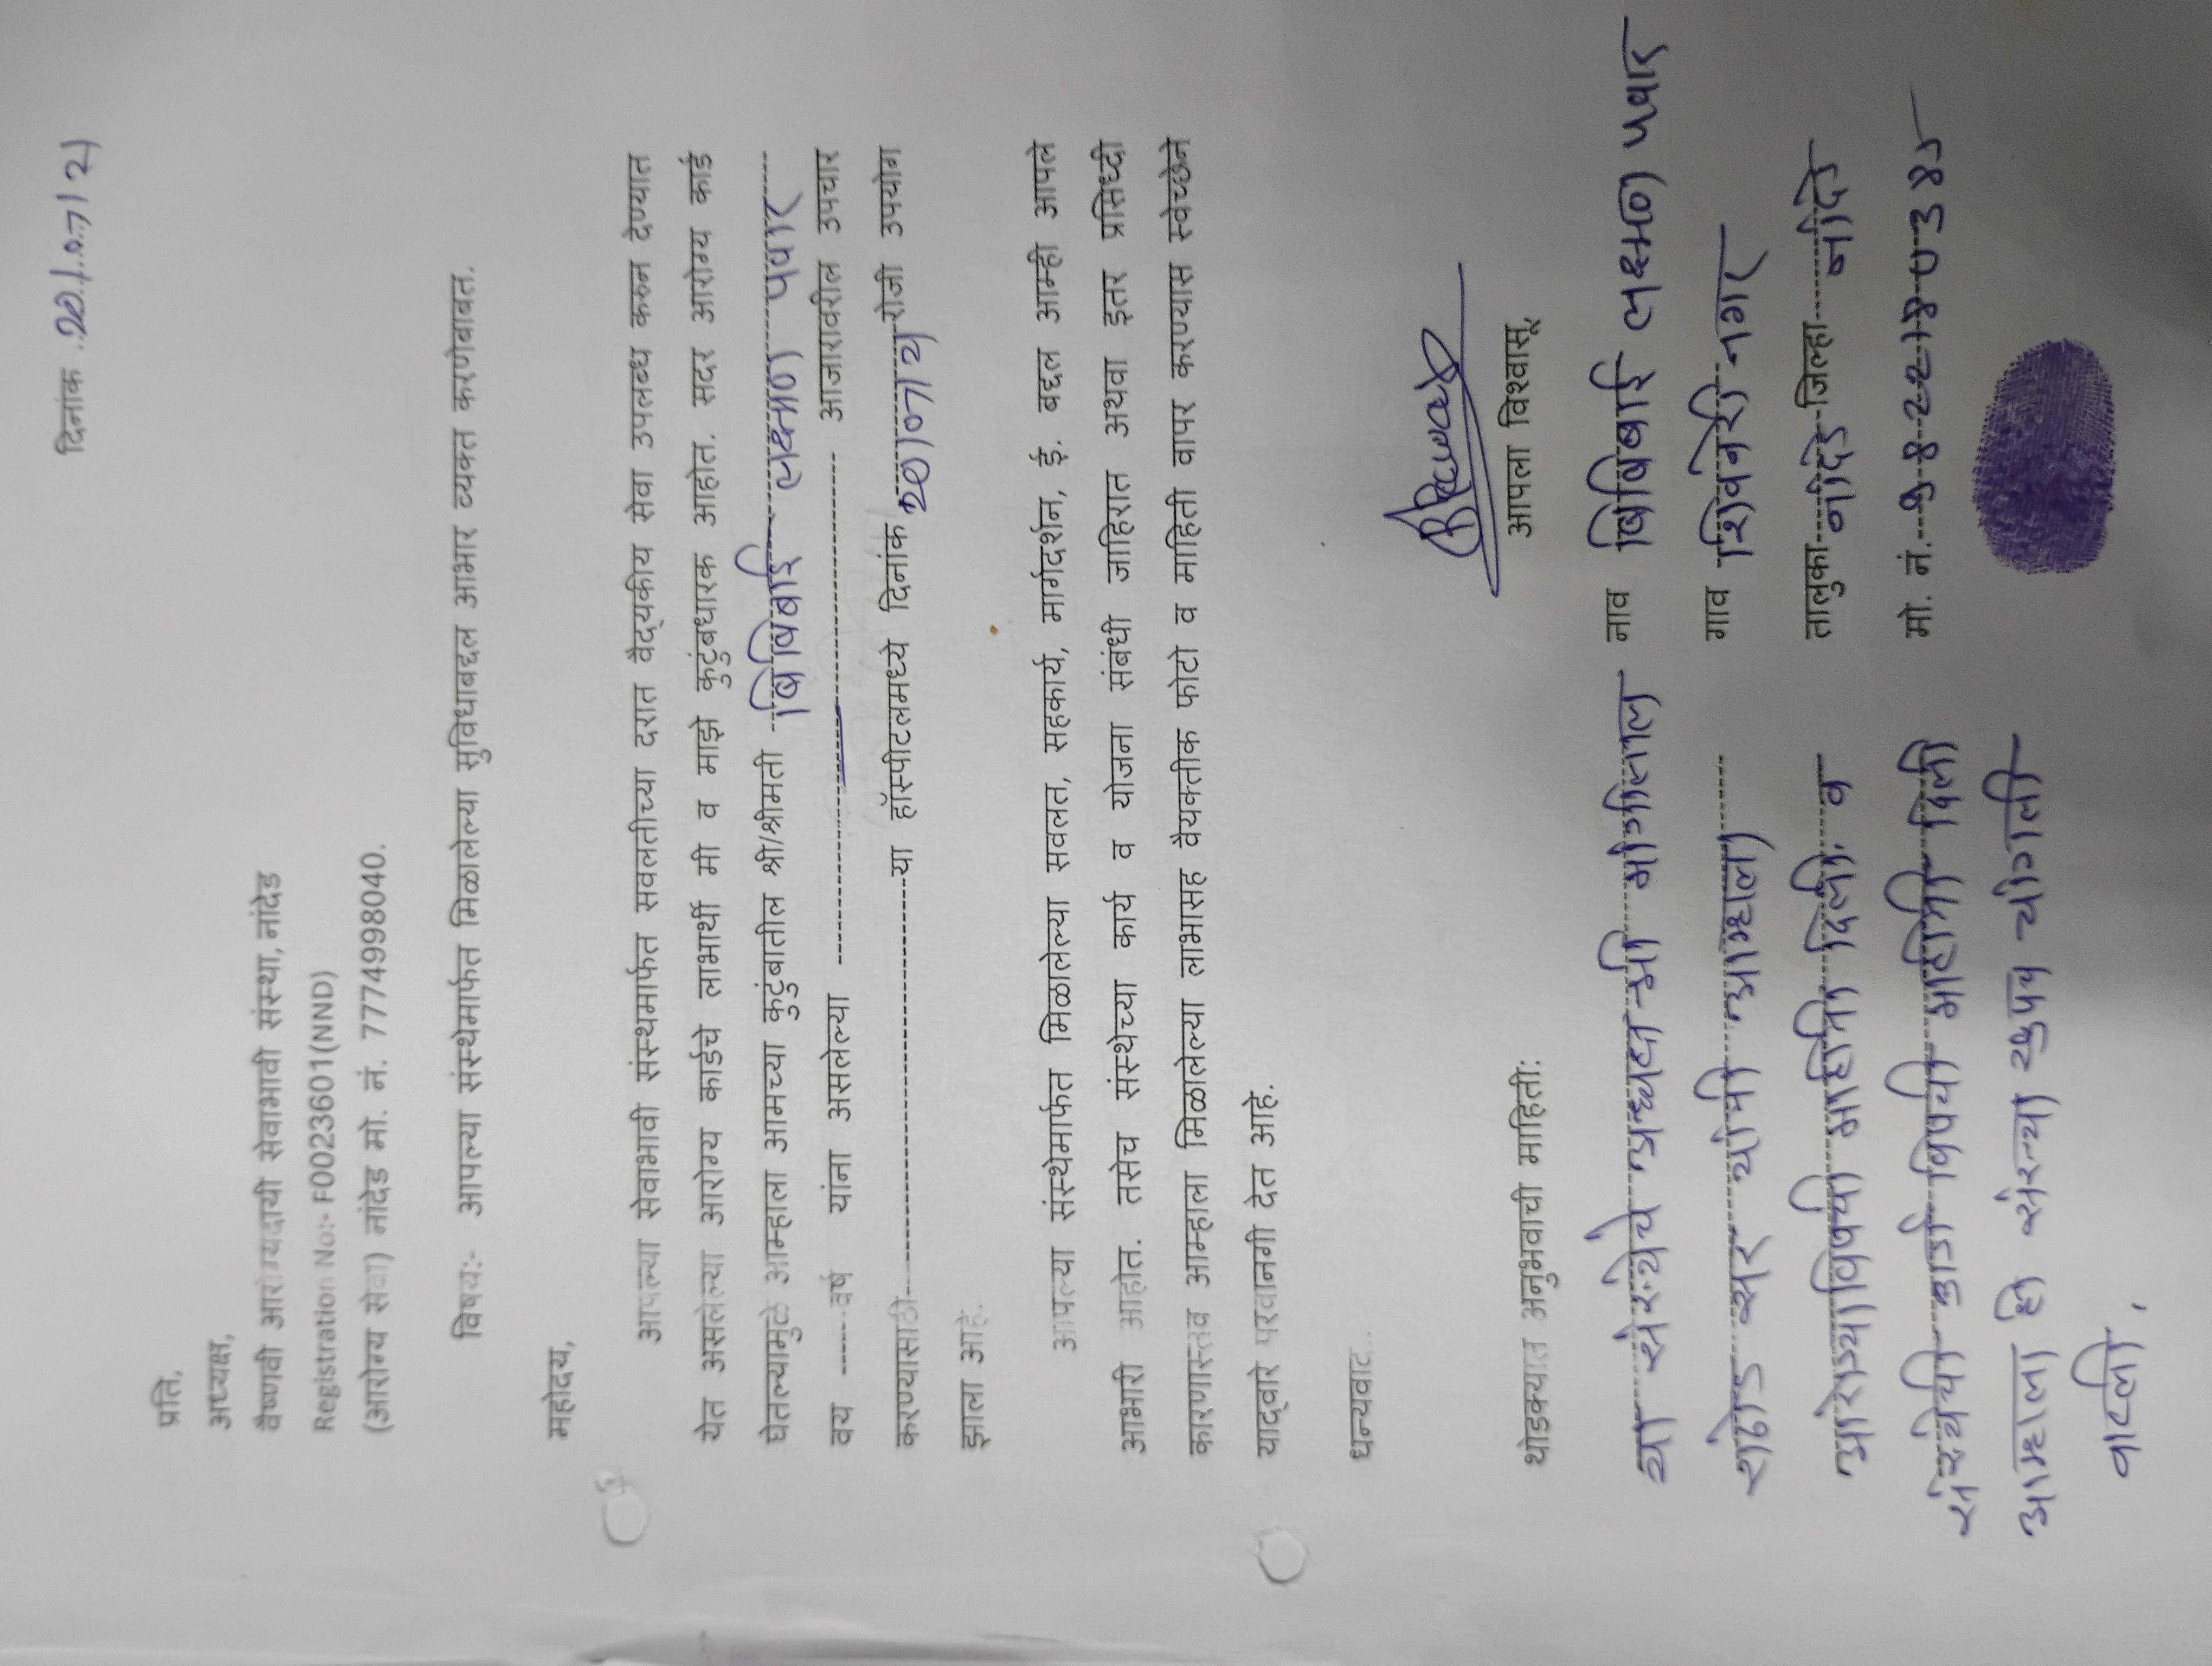 दिनांक 20/07/21
प्रति,
अध्यक्ष,
वैष्णवी आरोग्यदायी सेवाभावी संस्था, नांदेड
Registration No:- F0023601(NND)
(आरोग्य सेवा) नांदेड मो. नं. 7774998040.
विषय:- आपल्या संस्थेमार्फत मिळालेल्या सुविधाबद्दल आभार व्यक्त करणेबाबत.
महोदय,
आपल्या सेवाभावी संस्थेमार्फत सवलतीच्या दरात वैद्यकीय सेवा उपलब्ध करून देण्यात
येत असलेल्या आरोग्य कार्डचे लाभार्थी मी व माझे कुटुंबधारक आहोत. सदर आरोग्य कार्ड
घेतल्यामुळे आम्हाला आमच्या कुटुंबातील श्री/श्रीमती बिबिबाई लक्ष्मण पवार
वय ----- वर्ष यांना असलेल्या ---------- आजारावरील उपचार
करण्यासाठी ---------- या हॉस्पीटलमध्ये दिनांक 20/07/21 रोजी उपयोग
झाला आहे.
आपल्या संस्थेमार्फत मिळालेल्या सवलत, सहकार्य, मार्गदर्शन, ई. बद्दल आम्ही आपले
आभारी आहोत. तसेच संस्थेच्या कार्य व योजना संबंधी जाहिरात अथवा इतर प्रसिध्दी
कारणास्तव आम्हाला मिळालेल्या लाभासह वैयक्तीक फोटो व माहिती वापर करण्यास स्वेच्छेने
याद्वारे परवानगी देत आहे.
धन्यवाद..
आपला विश्वासू,
थोडक्यात अनुभवाची माहिती:
नाव बिबिबाई लक्ष्मण पवार
गाव शिवनेरी नगर
तालुका नांदेड जिल्हा नांदेड
मो. नं.
या संस्थेचे अध्यक्ष श्री मांगीलाल
राठोड सर यांनी आम्हाला
आरोग्याविषयी माहिती दिली. व
संस्थेची कार्ड विषयी माहिती दिली
आम्हाला ही संस्था खुप चांगली
वाटली.